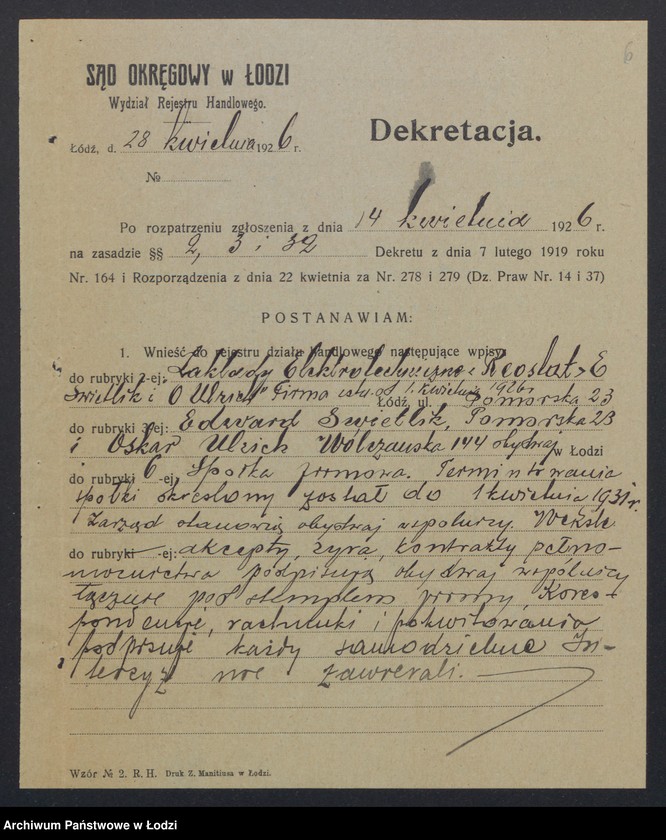 6
SĄD OKRĘGOWY w ŁODZI
Wydział Rejestru Handlowego.
Dekretacja.
Łódź, d. 28 kwietnia 1926 r.
№
Po rozpatrzeniu zgłoszenia z dnia 14 kwietnia 1926 r.
na zasadzie §§ 2, 3 i 32 Dekretu z dnia 7 lutego 1919 roku
Nr. 164 i Rozporządzenia z dnia 22 kwietnia za Nr. 278 i 279 (Dz. Praw Nr. 14 i 37)
POSTANAWIAM:
1. Wnieść do rejestru działu handlowego następujące wpisy:
do rubryki 2-ej: Zakłady Elektrotechniczne „Reostat" E
Swietlik i O Ulrich" Firma istn. od 1. kwietnia 1926 r
Łódź, ul. Pomorska 23
do rubryki 3-ej: Edward Swietlik, Pomorska 23
i Oskar Ulrich Wólczanska 144 obydwaj w Łodzi
do rubryki 6, -ej, Spółka firmowa. Termin trwania
spółki określony został do 1 kwietnia 1931 r.
Zarząd stanowią obydwaj wspólnicy. Weksle
do rubryki -ej: akcepty, żyra, kontrakty pełno-
mocnictwa podpisują obydwaj wspólnicy
łącznie pod stemplem firmy. Kores-
pondencje, rachunki i pokwitowania
podpisuje każdy samodzielnie In-
tercyz nie zawierali.
Wzór № 2. R. H. Druk Z. Manitiusa w Łodzi.
Archiwum Państwowe w Łodzi